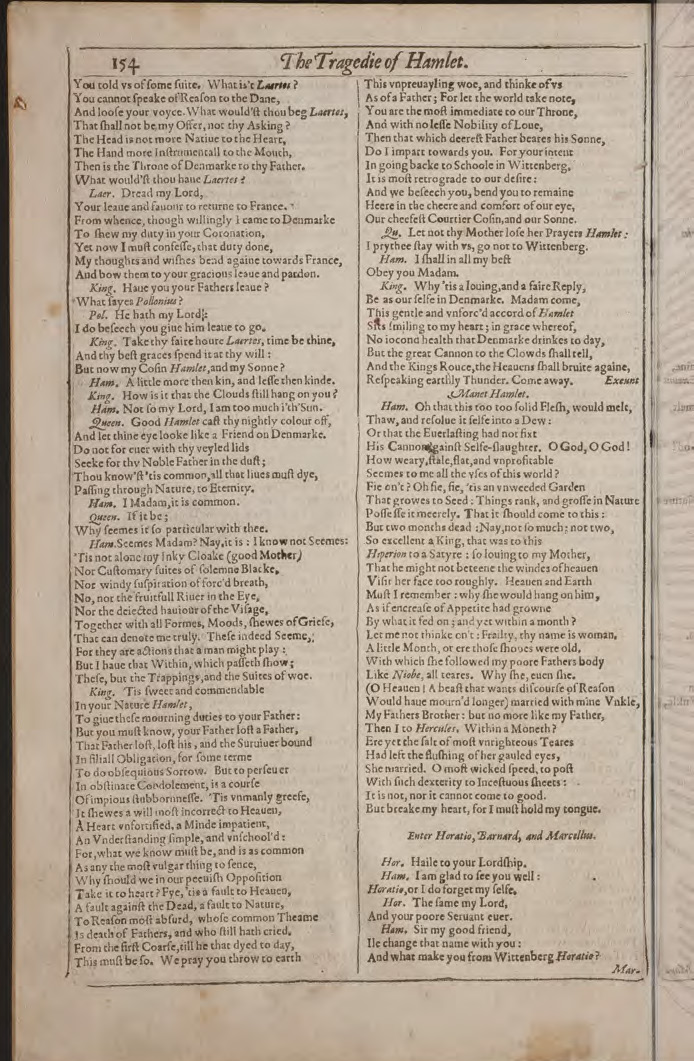 154
The Tragedie of Hamlet.
You told vs of some suite. What is't Laertes?
You cannot speake of Reason to the Dane,
And loose your voyce. What would'st thou beg Laertes,
That shall not be my Offer, not thy Asking?
The Head is not more Natiue to the Heart,
The Hand more Instrumentall to the Mouth,
Then is the Throne of Denmarke to thy Father.
What would'st thou haue Laertes?
Laer. Dread my Lord,
Your leaue and fauour to returne to France,
From whence, though willingly I came to Denmarke
To shew my duty in your Coronation,
Yet now I must confesse, that duty done,
My thoughts and wishes bend againe towards France,
And bow them to your gracious leaue and pardon.
King. Haue you your Fathers leaue?
What sayes Pollonius?
Pol. He hath my Lord:
I do beseech you giue him leaue to go.
King. Take thy faire houre Laertes, time be thine,
And thy best graces spend it at thy will:
But now my Cosin Hamlet, and my Sonne?
Ham. A little more then kin, and lesse then kinde.
King. How is it that the Clouds still hang on you?
Ham. Not so my Lord, I am too much i'th'Sun.
Queen. Good Hamlet cast thy nightly colour off,
And let thine eye looke like a Friend on Denmarke.
Do not for euer with thy veyled lids
Seeke for thy Noble Father in the dust;
Thou know'st 'tis common, all that liues must dye,
Passing through Nature, to Eternity.
Ham. I Madam, it is common.
Queen. If it be;
Why seemes it so particular with thee.
Ham. Seemes Madam? Nay, it is: I know not Seemes:
'Tis not alone my Inky Cloake (good Mother)
Nor Customary suites of solemne Blacke,
Nor windy suspiration of forc'd breath,
No, nor the fruitfull Riuer in the Eye,
Nor the deiected hauiour of the Visage,
Together with all Formes, Moods, shewes of Griefe,
That can denote me truly. These indeed Seeme,
For they are actions that a man might play:
But I haue that Within, which passeth show;
These, but the Trappings, and the Suites of woe.
King. 'Tis sweet and commendable
In your Nature Hamlet,
To giue these mourning duties to your Father:
But you must know, your Father lost a Father,
That Father lost, lost his, and the Suruiuer bound
In filiall Obligation, for some terme
To do obsequious Sorrow. But to perseuer
In obstinate Condolement, is a course
Of impious stubbornnesse. 'Tis vnmanly greefe,
It shewes a will most incorrect to Heauen,
A Heart vnfortified, a Minde impatient,
An Vnderstanding simple, and vnschool'd:
For, what we know must be, and is as common
As any the most vulgar thing to sence,
Why should we in our peeuish Opposition
Take it to heart? Fye, 'tis a fault to Heauen,
A fault against the Dead, a fault to Nature,
To Reason most absurd, whose common Theame
Is death of Fathers, and who still hath cried,
From the first Coarse, till he that dyed to day,
This must be so. We pray you throw to earth
This vnpreuayling woe, and thinke of vs
As of a Father; For let the world take note,
You are the most immediate to our Throne,
And with no lesse Nobility of Loue,
Then that which deerest Father beares his Sonne,
Do I impart towards you. For your intent
In going backe to Schoole in Wittenberg,
It is most retrograde to our desire:
And we beseech you, bend you to remaine
Heere in the cheere and comfort of our eye,
Our cheefest Courtier Cosin, and our Sonne.
Qu. Let not thy Mother lose her Prayers Hamlet:
I prythee stay with vs, go not to Wittenberg.
Ham. I shall in all my best
Obey you Madam.
King. Why 'tis a louing, and a faire Reply,
Be as our selfe in Denmarke. Madam come,
This gentle and vnforc'd accord of Hamlet
Sits smiling to my heart; in grace whereof,
No iocond health that Denmarke drinkes to day,
But the great Cannon to the Clowds shall tell,
And the Kings Rouce, the Heauens shall bruite againe,
Respeaking earthly Thunder. Come away. Exeunt
Manet Hamlet.
Ham. Oh that this too too solid Flesh, would melt,
Thaw, and resolue it selfe into a Dew:
Or that the Euerlasting had not fixt
His Cannon 'gainst Selfe-slaughter. O God, O God!
How weary, stale, flat, and vnprofitable
Seemes to me all the vses of this world?
Fie on't? Oh fie, fie, 'tis an vnweeded Garden
That growes to Seed: Things rank, and grosse in Nature
Possesse it meerely. That it should come to this:
But two months dead: Nay, not so much; not two,
So excellent a King, that was to this
Hiperion to a Satyre: so louing to my Mother,
That he might not beteene the windes of heauen
Visit her face too roughly. Heauen and Earth
Must I remember: why she would hang on him,
As if encrease of Appetite had growne
By what it fed on; and yet within a month?
Let me not thinke on't: Frailty, thy name is woman.
A little Month, or ere those shooes were old,
With which she followed my poore Fathers body
Like Niobe, all teares. Why she, euen she.
(O Heauen! A beast that wants discourse of Reason
Would haue mourn'd longer) married with mine Vnkle,
My Fathers Brother: but no more like my Father,
Then I to Hercules. Within a Moneth?
Ere yet the salt of most vnrighteous Teares
Had left the flushing of her gauled eyes,
She married. O most wicked speed, to post
With such dexterity to Incestuous sheets:
It is not, nor it cannot come to good.
But breake my heart, for I must hold my tongue.
Enter Horatio, Barnard, and Marcellus.
Hor. Haile to your Lordship.
Ham. I am glad to see you well:
Horatio, or I do forget my selfe.
Hor. The same my Lord,
And your poore Seruant euer.
Ham. Sir my good friend,
Ile change that name with you:
And what make you from Wittenberg Horatio?
Mar.